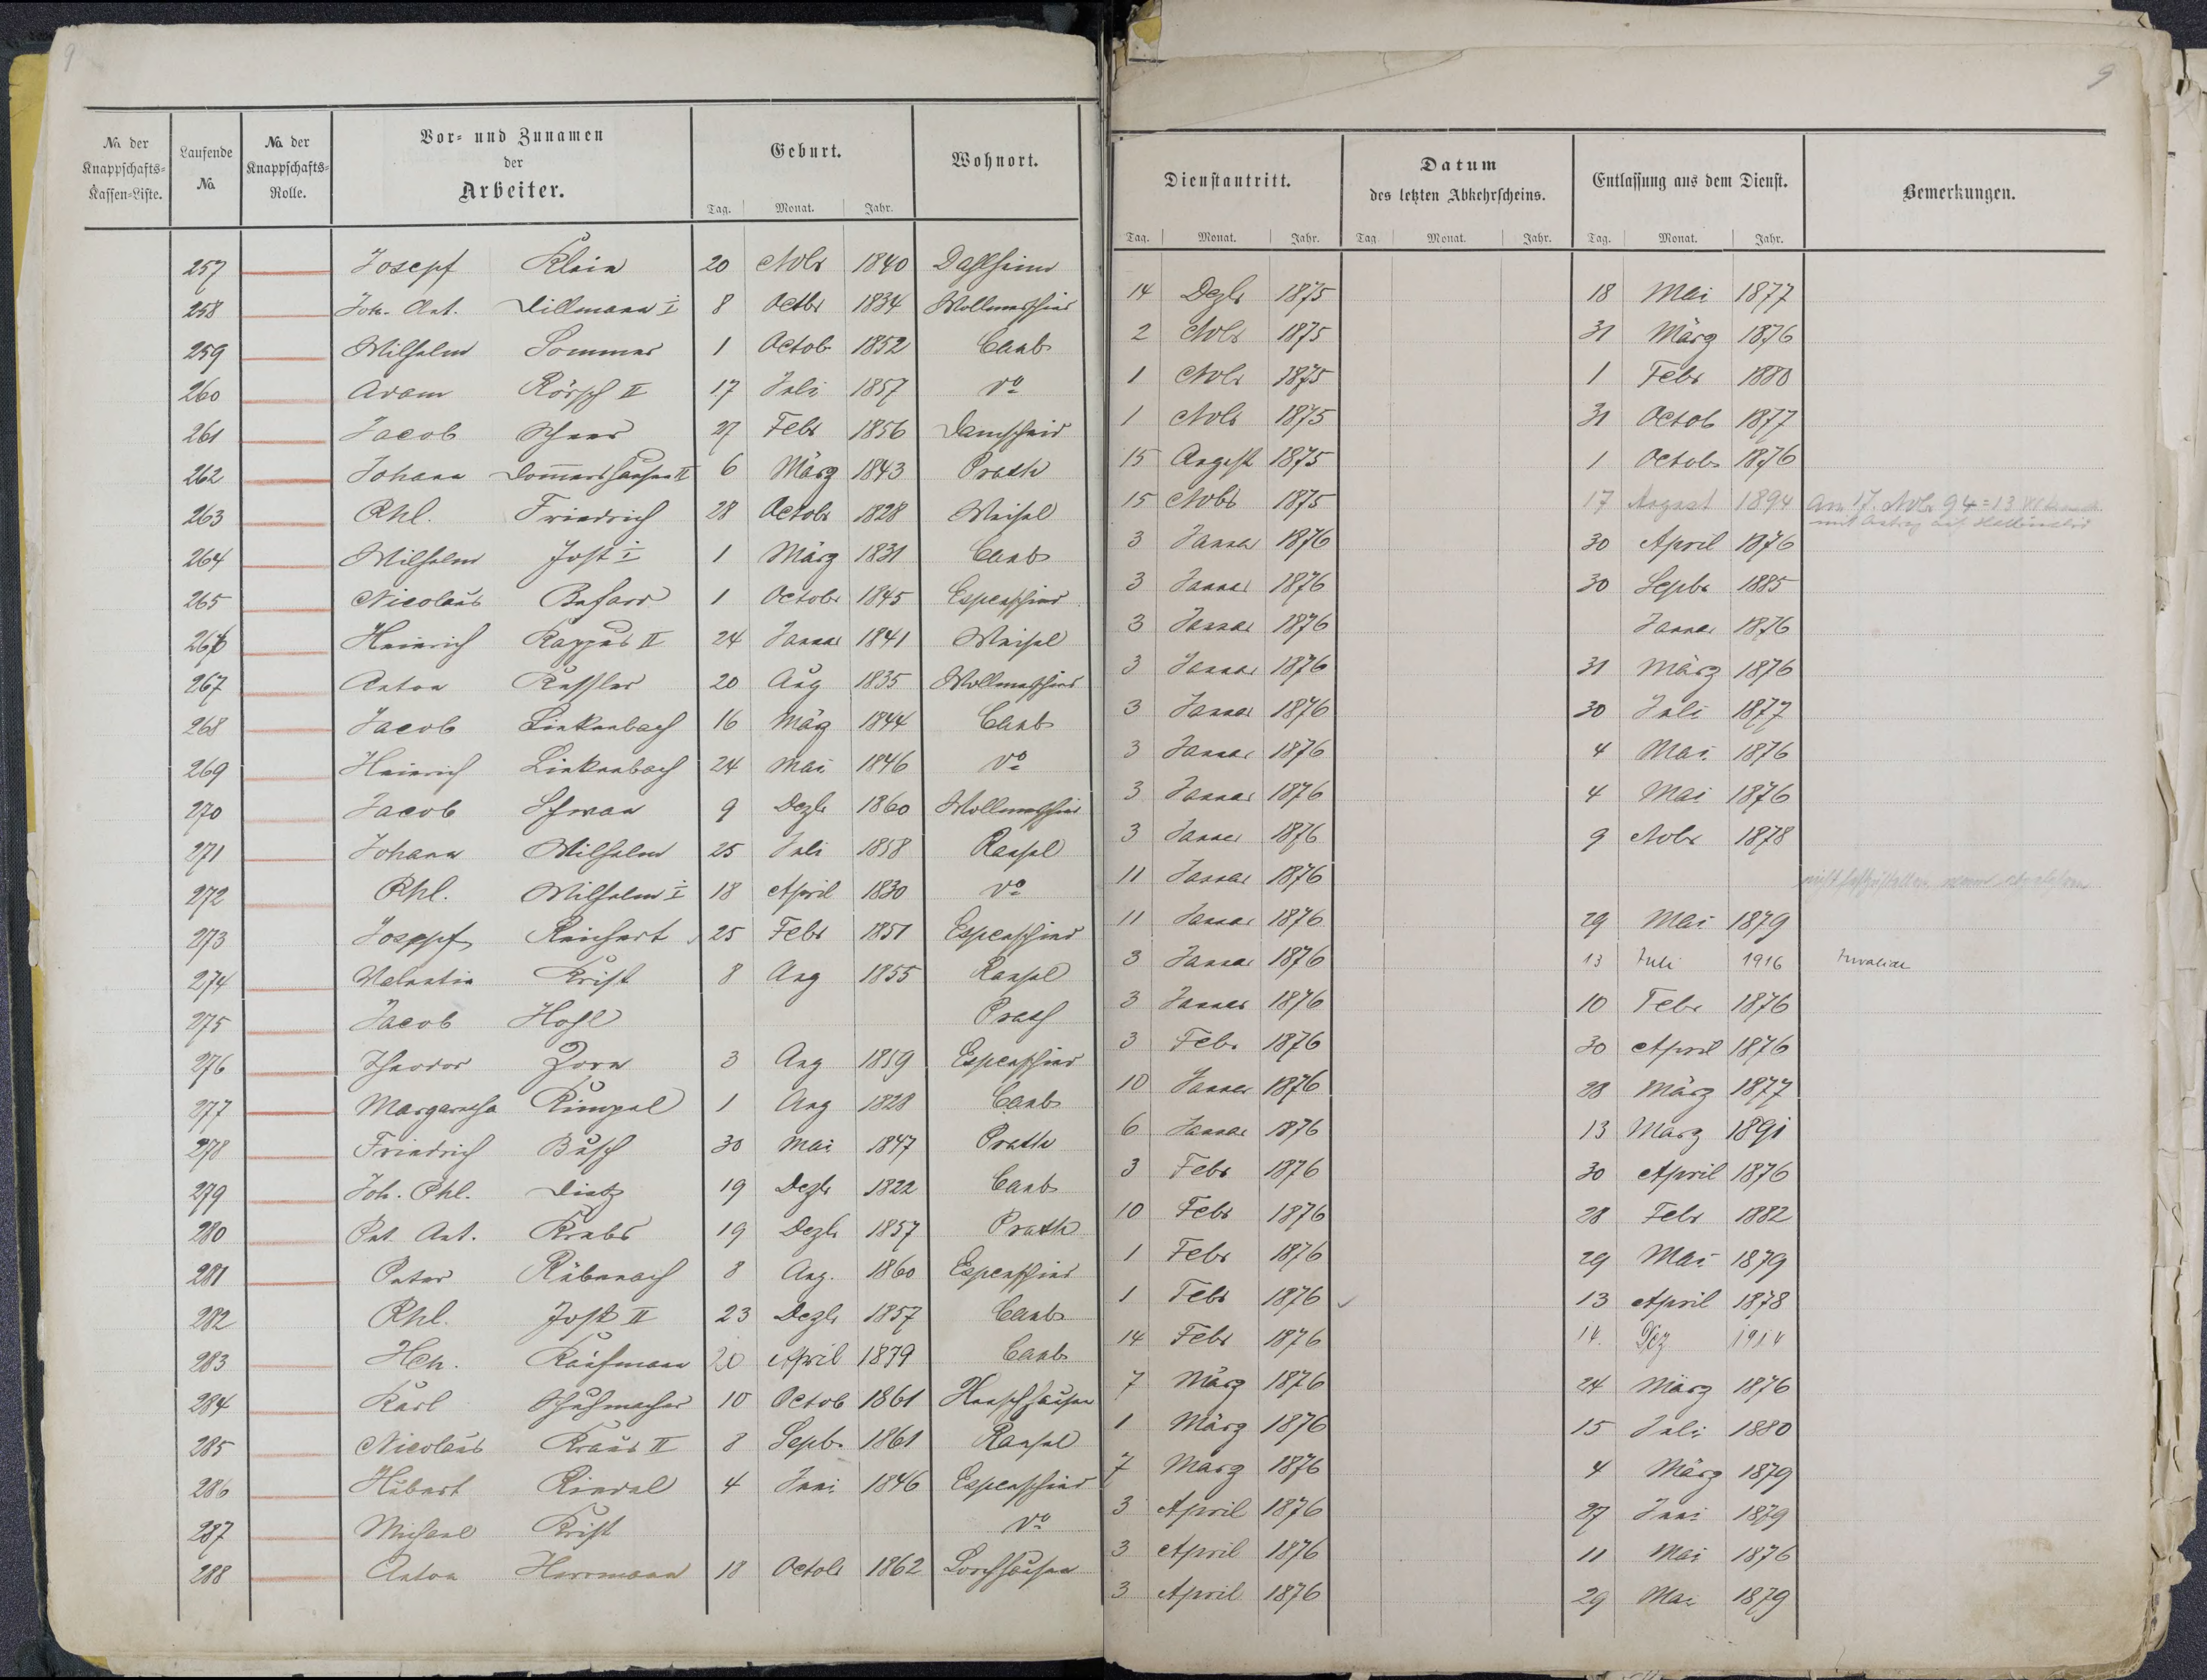 9
No. der Knappschafts-Kassen-Liste. Laufende No. No. der Knappschafts-Rolle. Vor- und Zunamen der Arbeiter. Geburt. Wohnort.
Tag. Monat. Jahr.
257 Josepf Klein 20 Nvbr 1840 Dahlheim
258 Joh. Ant. Dillmann I 8 Octbr 1834 Wollmerschied
259 Wilhelm Sommer 1 Octob 1852 Caub
260 Adam Rörsch II 17 Juli 1857 do
261 Jacob 27 Febr 1856 Damscheid
262 Johann Dom̅ershausen II 6 März 1843 Prath
263 Phl. Friedrich 28 Octobr 1828 Weisel
264 Wilhelm Jost I 1 März 1831 Caub
265 Nicolaus 1 Octobr 1845 Espenschied
266 Heinrich Rappus II 24 Januar 1841 Weisel
267 Anton 20 Aug 1835 Wollmerschied
268 Jacob Linkenbach 16 März 1844 Caub
269 Heinrich Linkenbach 24 Mai 1846 do
270 Jacob Schwan 9 Dezbr 1860 Wollmerschied
271 Johann Wilhelm 25 Juli 1858 Ransel
272 Phl. Wilhelm I 18 April 1830 do
273 Joseppf Reichert 25 Febr 1851 Espenschied
274 Valentin Krist 8 Aug 1855 Ransel
275 Jacob Hohl Prath
276 Theodor Zorn 3 Aug 1859 Espenschied
277 Margaretha Rumpel 1 Aug 1828 Caub
278 Friedrich Busch 30 Mai 1847 Prath
279 Joh. Phl. Dietz 19 Dezbr 1822 Caub
280 Pet. Ant. Krebs 19 Dezbr 1857 Prath
281 Peter Rübenach 8 Aug. 1860 Espenschied
282 Phl. Jost II 23 Dezbr 1857 Caub
283 Hch. Kaufmann 20 April 1839 Caub
284 Karl Schuhmacher 10 Octob 1861
285 Nicolaus Kraus II 8 Sepbr 1861 Ransel
286 Hubert Riedel 4 Juni 1846 Espenschied
287 Michael Krist do
288 Anton Herrmann 18 Octobr 1862 Lorchhausen
9
Dienstantritt. Datum des letzten Abkehrscheins. Entlassung aus dem Dienst. Bemerkungen.
Tag. Monat. Jahr. Tag Monat. Jahr. Tag. Monat. Jahr.
14 Dezbr 1875 18 Mai 1877
2 Nvbr 1875 31 März 1876
1 Nvbr 1875 1 Febr 1880
1 Nvbr 1875 31 Octob 1877
15 August 1875 1 Octobr 1876
15 Nvbr 1875 17 August 1894 Am 17. Nvbr 94 = 13
mit Antrag auf
3 Januar 1876 30 April 1876
3 Januar 1876 30 Sepbr 1885
3 Januar 1876 Januar 1876
3 Januar 1876 31 März 1876
3 Januar 1876 30 Juli 1877
3 Januar 1876 4 Mai 1876
3 Januar 1876 4 Mai 1876
3 Januar 1876 9 Nobr 1878
11 Januar 1876 nicht festzustellen,
11 Januar 1876 29 Mai 1879
3 Januar 1876 13 Juli 1916 Invalide
3 Januar 1876 10 Febr 1876
3 Febr 1876 30 April 1876
10 Januar 1876 28 März 1877
6 Januar 1876 13 März 1891
3 Febr 1876 30 April 1876
10 Febr 1876 28 Febr 1882
1 Febr 1876 29 Mai 1879
1 Febr 1876 13 April 1878
14 Febr 1876 14. Dez 1914
7 März 1876 24 März 1876
1 März 1876 15 Juli 1880
7 März 1876 4 März 1879
3 April 1876 27 Juni 1879
3 April 1876 11 Mai 1876
3 April 1876 29 Mai 1879